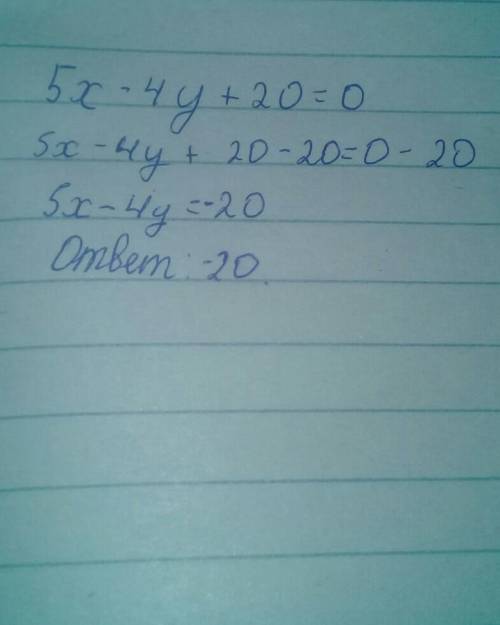 5x - 4y + 20 = 0
5x - 4y + 20 - 20 = 0 - 20
5x - 4y = -20
Ответ: -20.